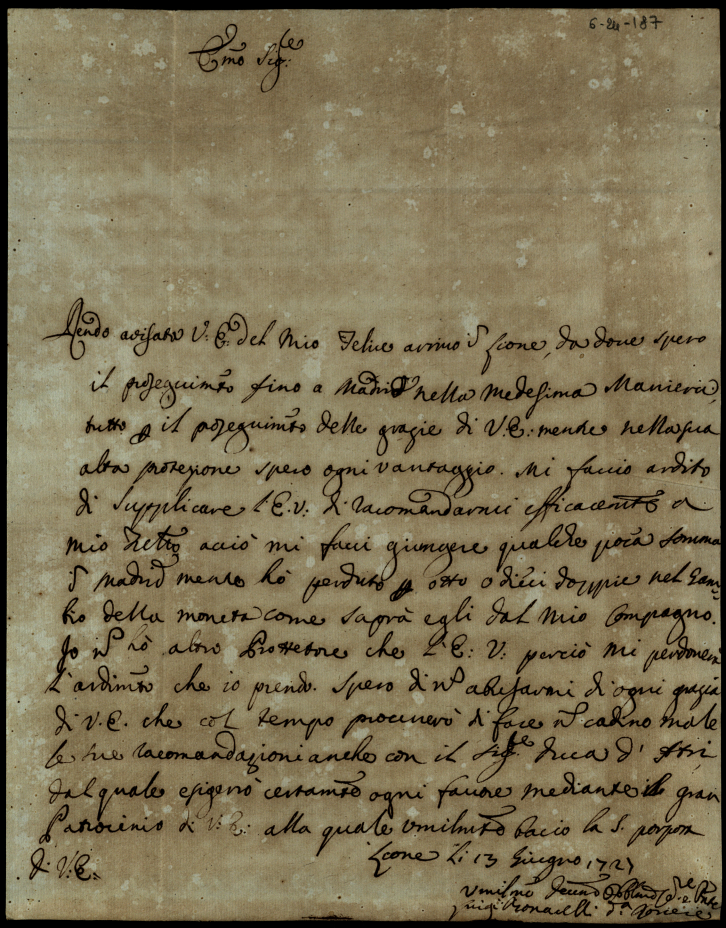 6-24-187
Em̃o Sig.re
Rendo avisata V: E. del Mio Felice arrivo ī Lione, da dove spero
il proseguim.to fino a Madrid nella medesima Maniera,
tutto ꝑ il proseguim.to delle grazie di V:E: mentre nella sua
alta protezione spero ogni vantaggio. Mi faccio ardito
di Supplicare l'E.V: di racomandarmi efficacem.te a
mio acciò mi facci giungere qualche poca somma
ī Madrid mentre hò perduto otto o dieci doppie nel Cam
bio della moneta come saprà egli dal Mio Compagno.
Io ñ hò altro Prottetore che l'E: V: perciò mi perdonerà
l'ardim.to che io prendo. Spero di ñ abusarmi di ogni grazia
di V.E. che col tempo procurerò di fare ñ cadino male
le sue racomandazioni anche con il Sig.re Duca d'Atri
dal quale esigerò certam.te ogni favore mediante il gran
Patrocinio di V:E: alla quale umilm.te bacio la S. porpora
di V:E. Lione Li 13 Giugno 1727
Umilmo
Luigi